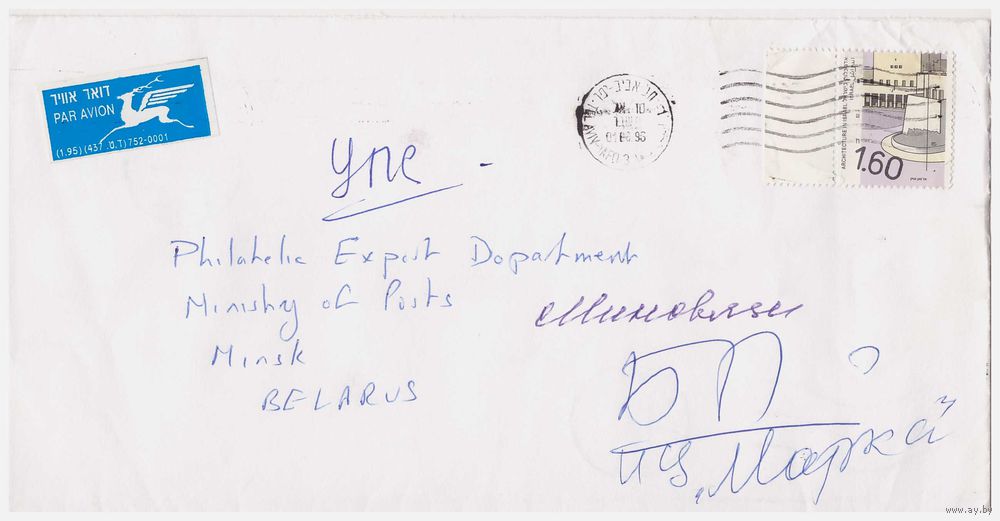 דואר אוויר
PAR AVION
(1.95) (437 .ס.ט) 752-0001
1.60
ARCHITECTURE IN ISRAEL
упс -
Philatelic Export Dopartment
Ministry of Posts
Minsk
BELARUS
Минсвязи
БП
ИЦ „Марка"
www.ay.by